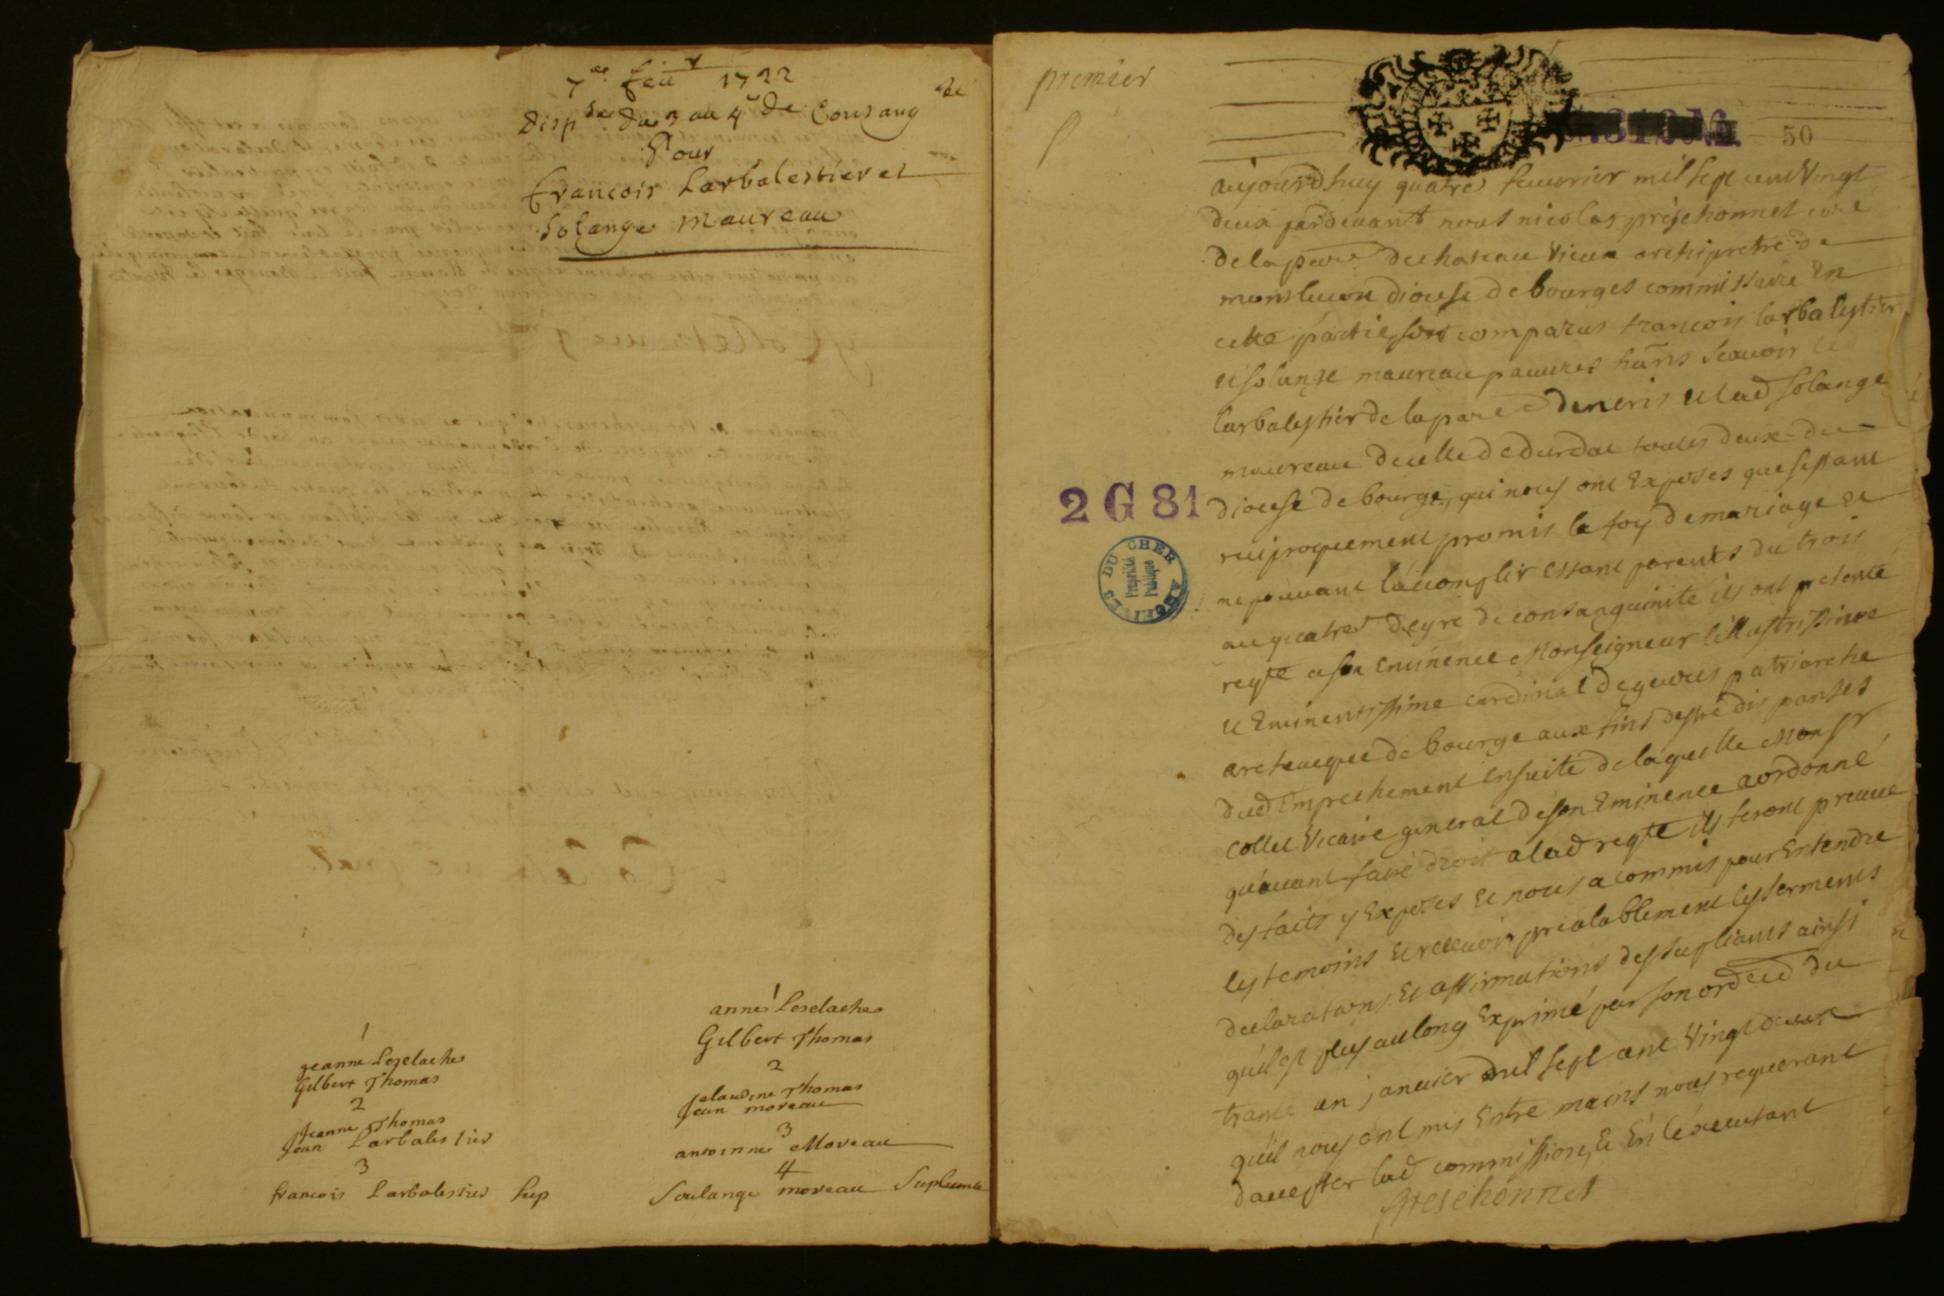 7e feu r 1722
Dispse du 3 au 4e de Consang té
Pour
francois Larbalestier et
Solange Maureau
1
geanne Lezelache
Gilbert Thomas
2
Jeanne Thomas
Jean Larbalestier
3
francois Larbalestier sup
1
anne Leselache
Gilbert Thomas
2
claudine Thomas
Jean moreau
3
antoinne Moreau
4
Soulange moreau Supliante
premier
50
2 G 81
ARCHIVES DU CHER
Propriété
Publique
aujourdhuy quatre feuurier mil sept cent Vingt
deux pardeuant nous nicolas preschonnet curé
de la parre de chateau Vieux archipretré de
monluçon diocese de bourges commissaire En
cette partie, sont comparus francois larbalestier
et solange maureau pauures hans scauoir
larbalestier de la parre de neris et lad solange
maureau de celle de durdat touts deux du
diocese de bourge, qui nous ont Exposés que sestant
reciproquement promis la foy de mariage et
ne pouuant laccomplir estant parents du trois
au quatre degre de consanguinité ils ont presenté
reqte a son Eminence Monseigneur lillustrissime
et Eminentissime cardinal de geures patriarche
archeueque de bourge aux fins destre dispansés
dud Empechement ensuite de laquelle Monsr
Collet Vicaire general de son Eminence a ordonné
qu'auant faire droit a lad reqte ils feront preuue
des faits y Exposes et nous a commis pour Entendre
les temoins et receuoir prealablement les serments
declarations Et affirmations des supliants ainsi
quil est plus au long Exprimé par son ord en d du
trante un januier mil sept cent Vingt deux
quil nous ont mis Entre mains nous requerant
daccepter lad commission, Et En lexecutant
Preschonnet